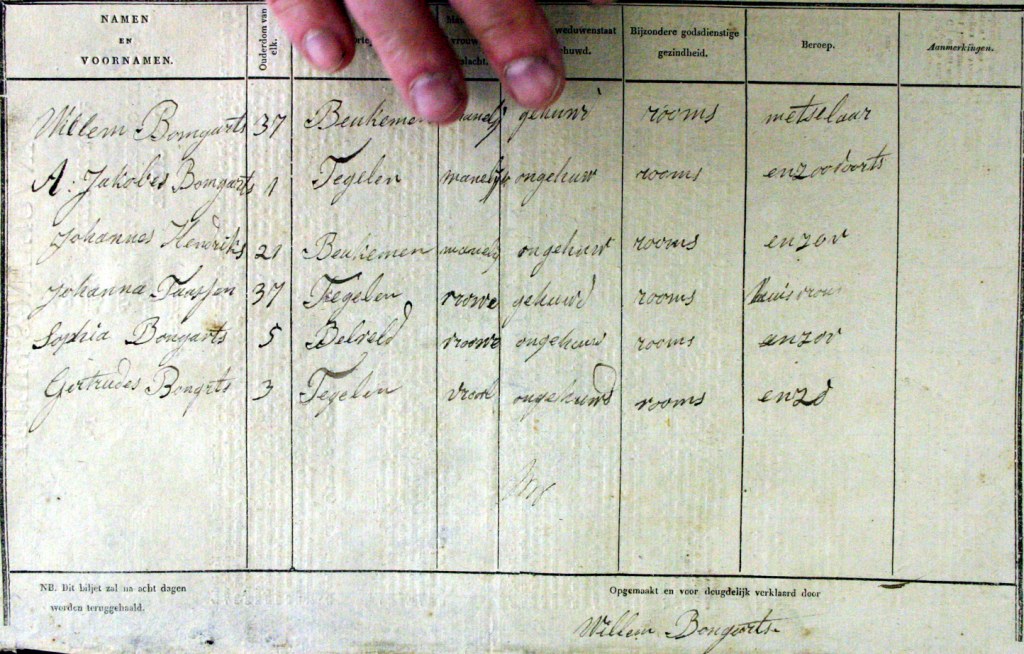 NAMEN EN VOORNAMEN. Ouderdom van elk. weduwenstaat Bijzondere godsdienstige gezindheid. Beroep. Aanmerkingen.
Willem Bomgarts 37 Beukemen gehuwd rooms metselaar
A: Jakobes Bomgarts 1 Tegelen manelyk ongehuw rooms enzoovoorts
Johannes Hendriks 21 Beukemen manely ongehuw rooms enzov
Johanna 37 Tegelen vrowe gehuwd rooms huisvrou
Sophia Bongarts 5 Belveld vrowe ongehuwd rooms anzov
Gertrudes Bongrts 3 Tegelen ongehuwd rooms enzo
NB. Dit biljet zal na acht dagen
worden teruggehaald.
Opgemaakt en voor deugdelijk verklaard door
Willem Bongarts